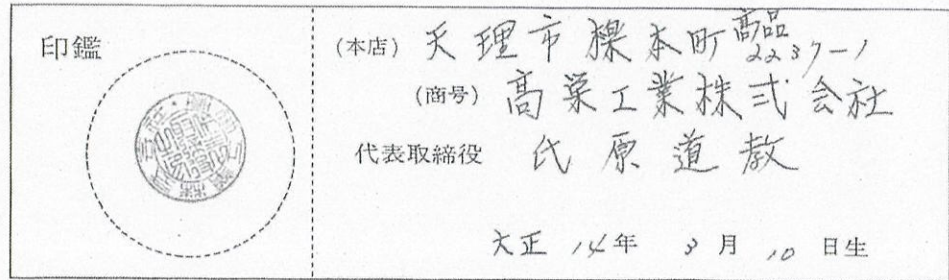 印鑑
(本店) 天理市櫟本町高品2237-1
(商号) 高巣工業株式会社
代表取締役 氏原道教
大正14年3月10日生